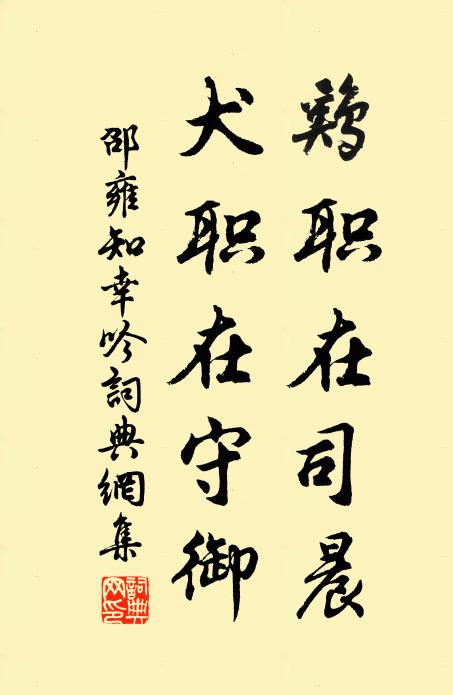 鷄职在司晨
犬职在守御
邵雍知幸吟詞典網集
詞典網印